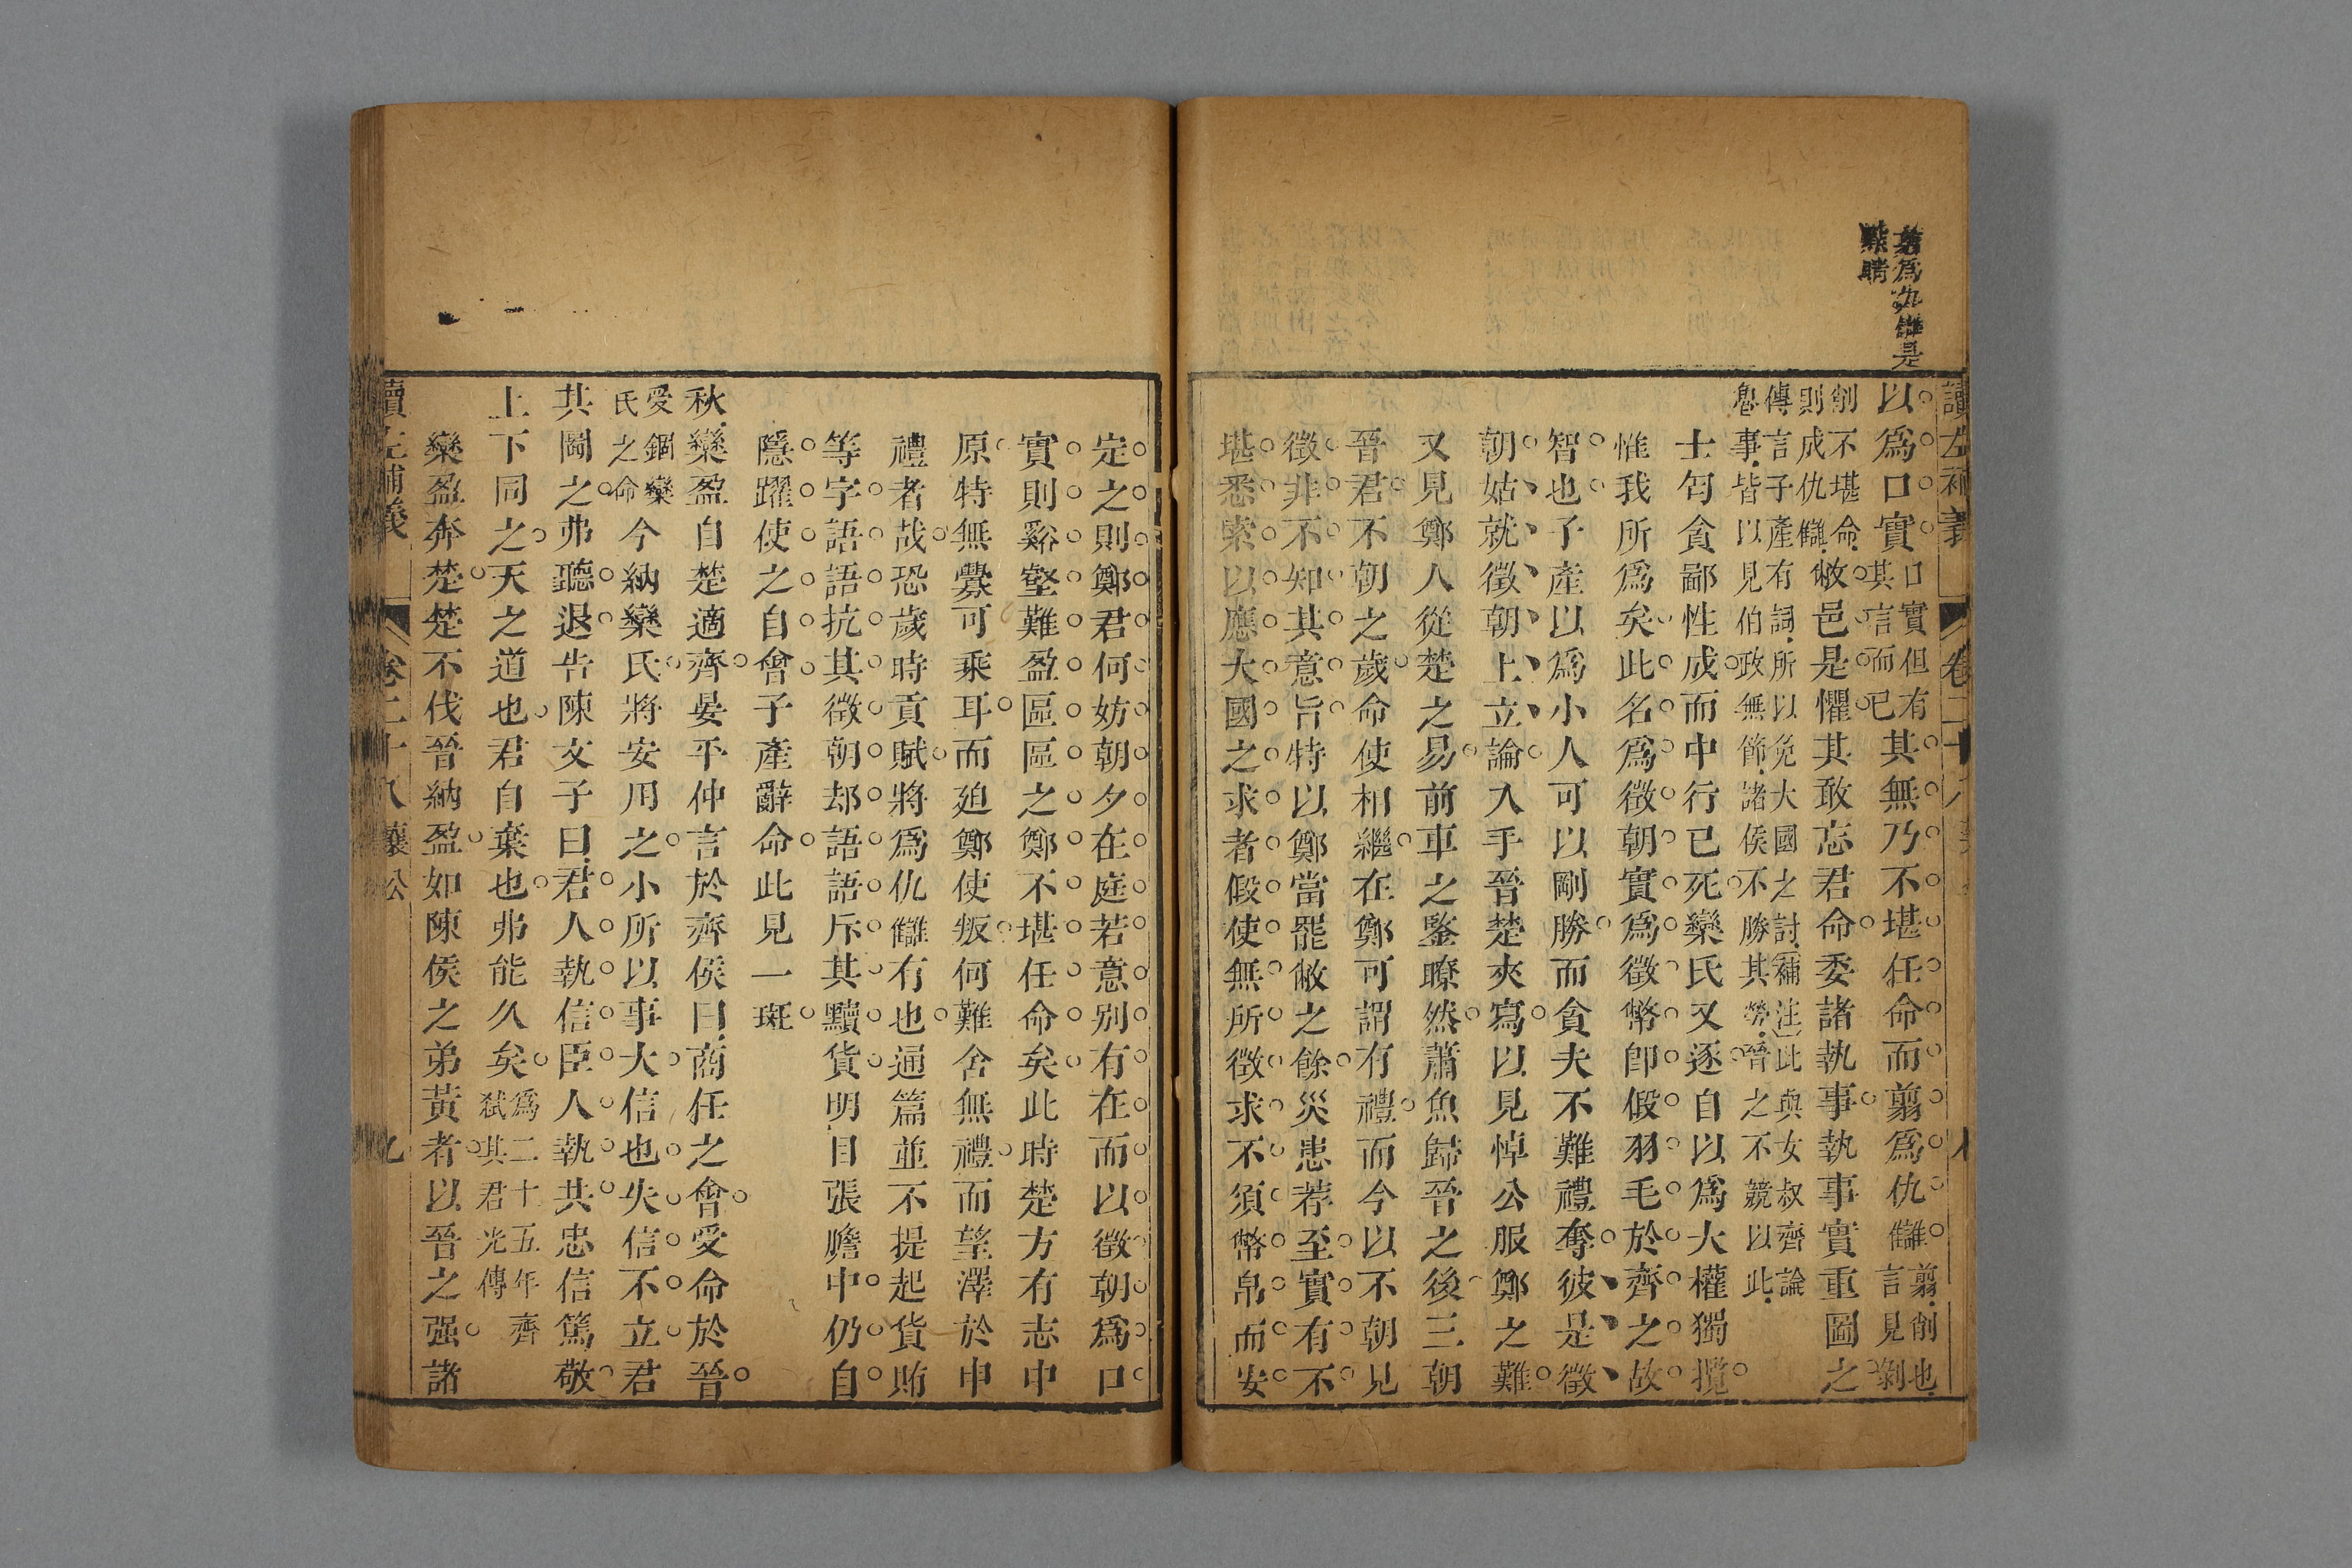 讀左補義
卷二十八
爲仇讎是
點睛
以爲口實口實但有其言而已其無乃不堪任命而翦爲仇讎翦削也言見剝
削不堪命則成仇讎敝邑是懼其敢忘君命委諸執事執事實重圖之
傳言子產有詞所以免大國之討補注此與女叔齊論魯事皆以見伯政無節諸侯不勝其勞晉之不競以此
士匄貪鄙性成而中行已死欒氏又逐自以爲大權獨攬
惟我所爲矣此名爲徵朝實爲徵幣卽假羽毛於齊之故
智也子產以爲小人可以剛勝而貪夫不難禮奪彼是徵
朝姑就徵朝上立論入手晉楚夾寫以見悼公服鄭之難
又見鄭人從楚之易前車之鑒瞭然蕭魚歸晉之後三朝
晉君不朝之歲命使相繼在鄭可謂有禮而今以不朝見
徵非不知其意旨特以鄭當罷敝之餘災患荐至實有不
堪悉索以應大國之求者假使無所徵求不須幣帛而安
定之則鄭君何妨朝夕在庭若意别有在而以徵朝爲口
實則谿壑難盈區區之鄭不堪任命矣此時楚方有志中
原特無釁可乘耳而廹鄭使叛何難舍無禮而望澤於申
禮者哉恐歲時貢賦將爲仇讎有也通篇並不提起貨賄
等字語語抗其徵朝却語語斥其黷貨明目張膽中仍自
隱躍使之自會子產辭命此見一斑
秋欒盈自楚適齊晏平仲言於齊侯曰商任之會受命於晉
受錮欒氏之命今納欒氏將安用之小所以事大信也失信不立君
其圖之弗聽退告陳文子曰君人執信臣人執共忠信篤敬
上下同之天之道也君自棄也弗能久矣爲二十五年齊弒其君光傳
欒盈奔楚楚不伐晉納盈如陳侯之弟黃者以晉之强諸
讀左補義
卷二十八 襄公
九